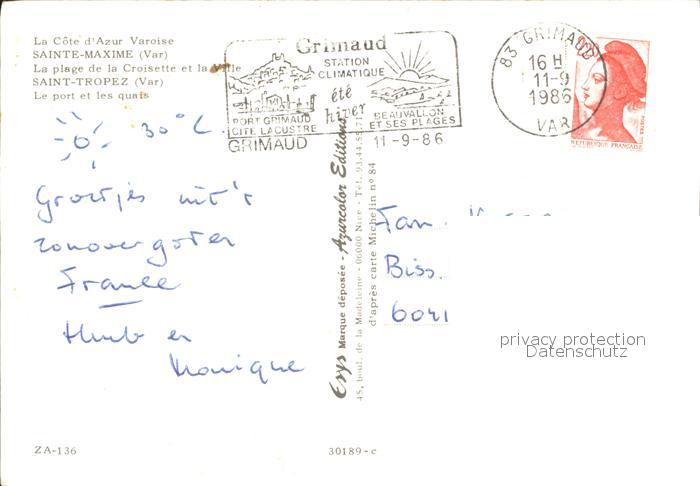 La Côte d'Azur Varoise
SAINTE-MAXIME (Var)
La plage de la Croisette et la Ville
SAINT-TROPEZ (Var)
Le port et les quais
Grimaud
STATION
CLIMATIQUE
été
hiver
PORT GRIMAUD
CITE LACUSTRE
BEAUVALLON
ET SES PLAGES
GRIMAUD
11-9-86
83 GRIMAUD
16 H
11-9
1986
VAR
REPUBLIQUE FRANÇAISE
30°C
Groetjes uit 't
zonovergoten
France
Huub en
Monique
Esys Marque déposée - Azurcolor Editions
45, boul. de la Madeleine - 06000 Nice - Tél. 93.44.
d'après carte Michelin n° 84
Fam.
Biss.
6041
privacy protection
Datenschutz
ZA-136
30189-c